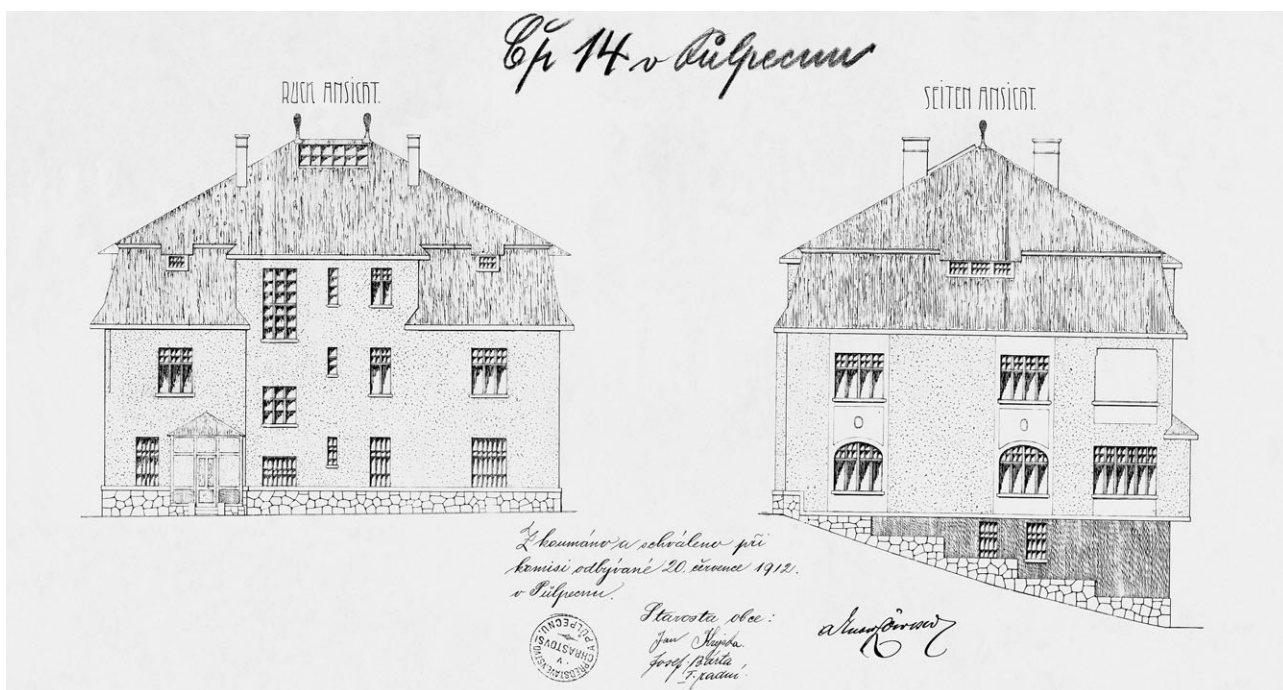 Čp 14 v Půlpecnu
RÜCK ANSICHT.
SEITEN ANSICHT.
Zkoumáno a schváleno při
komisi odbývané 20. července 1912.
v Půlpecnu.
Starosta obce:
Jan
Josef Bárta
I. radní.
PŘEDSTAVENSTVO
V CHRASTOVĚ
A PŮLPECNU